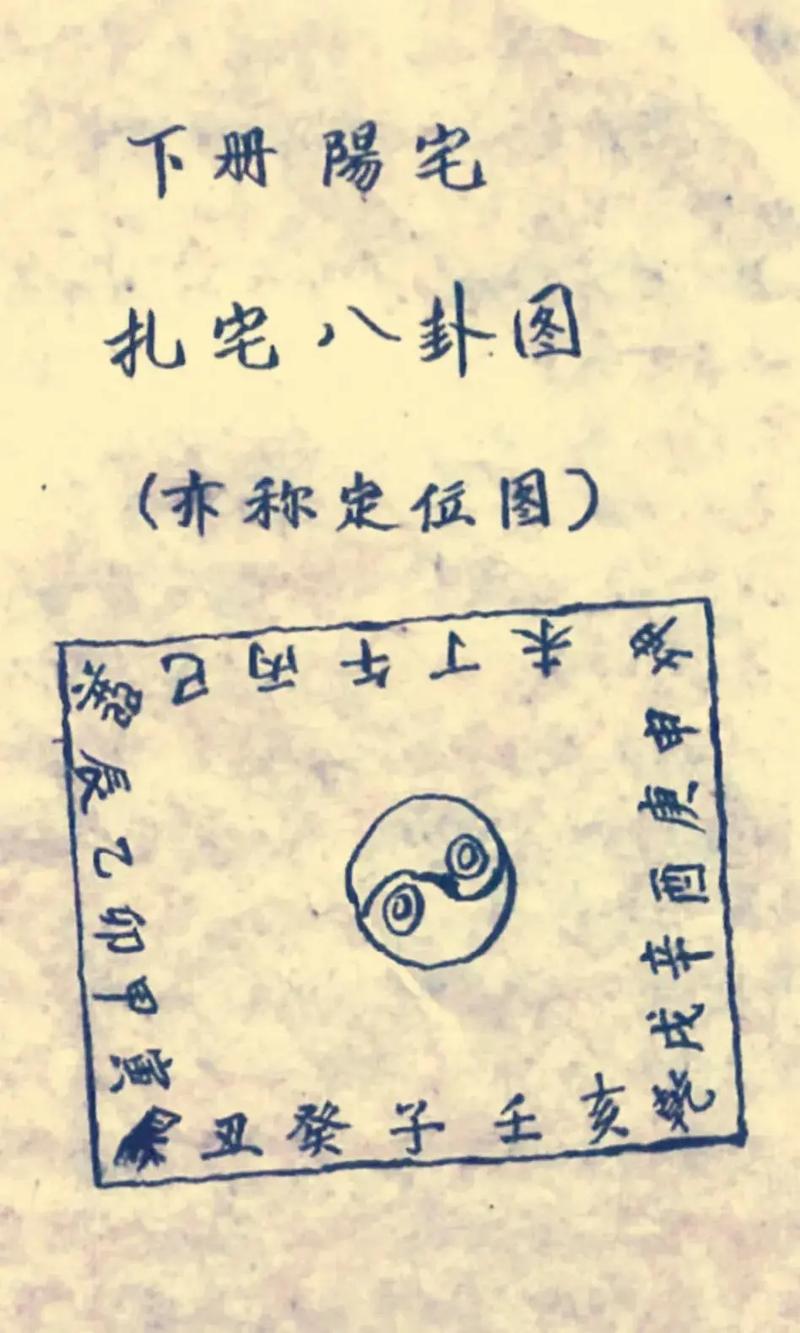 下册 陽宅
扎宅八卦图
(亦称定位图)
巽巳丙午丁未
申庚酉辛戌乾
辰乙卯甲寅
丑癸子壬亥